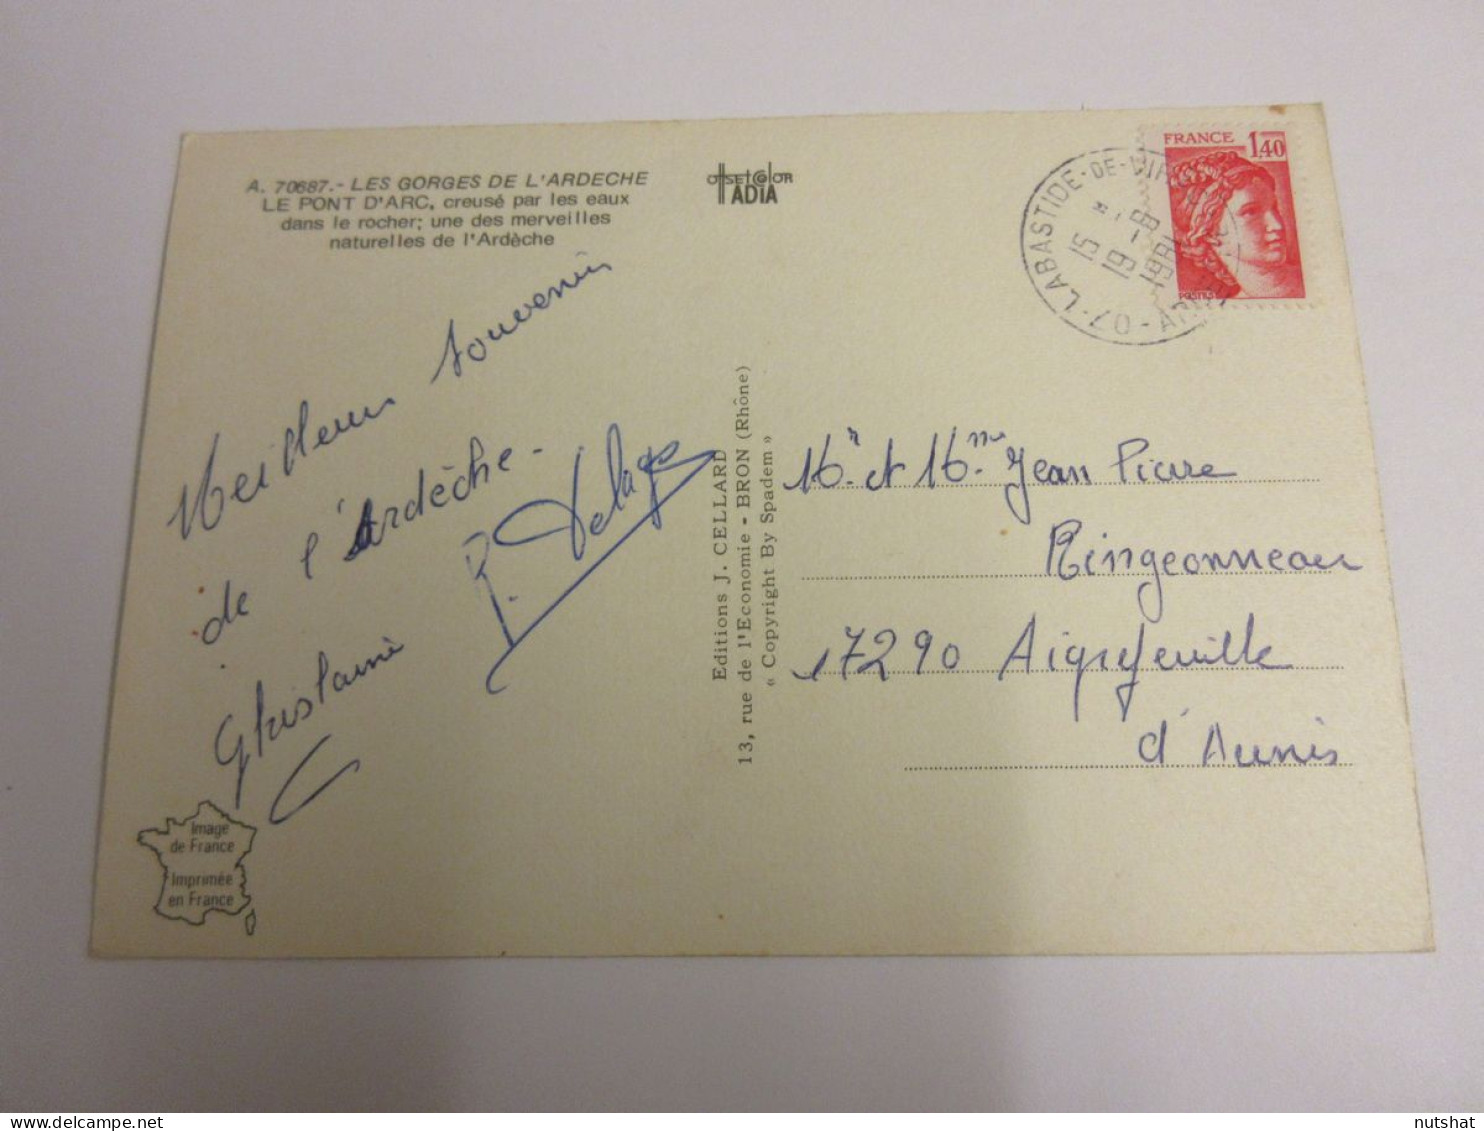 A. 70687.- LES GORGES DE L'ARDECHE
LE PONT D'ARC, creusé par les eaux
dans le rocher; une des merveilles
naturelles de l'Ardèche
offsetcolor
IADIA
FRANCE 1,40
POSTES
07-LABASTIDE-DE-VIR
15 *
19 -8
1981
Meilleurs souvenirs
de l'Ardèche.
Ghislaine
P. Delage
Editions J. CELLARD
13, rue de l'Economie - BRON (Rhône)
« Copyright By Spadem »
Mr et Mme Jean Pierre
Ringeonneau
17290 Aigrefeuille
d'Aunis
Image
de France
Imprimée
en France
nutshat